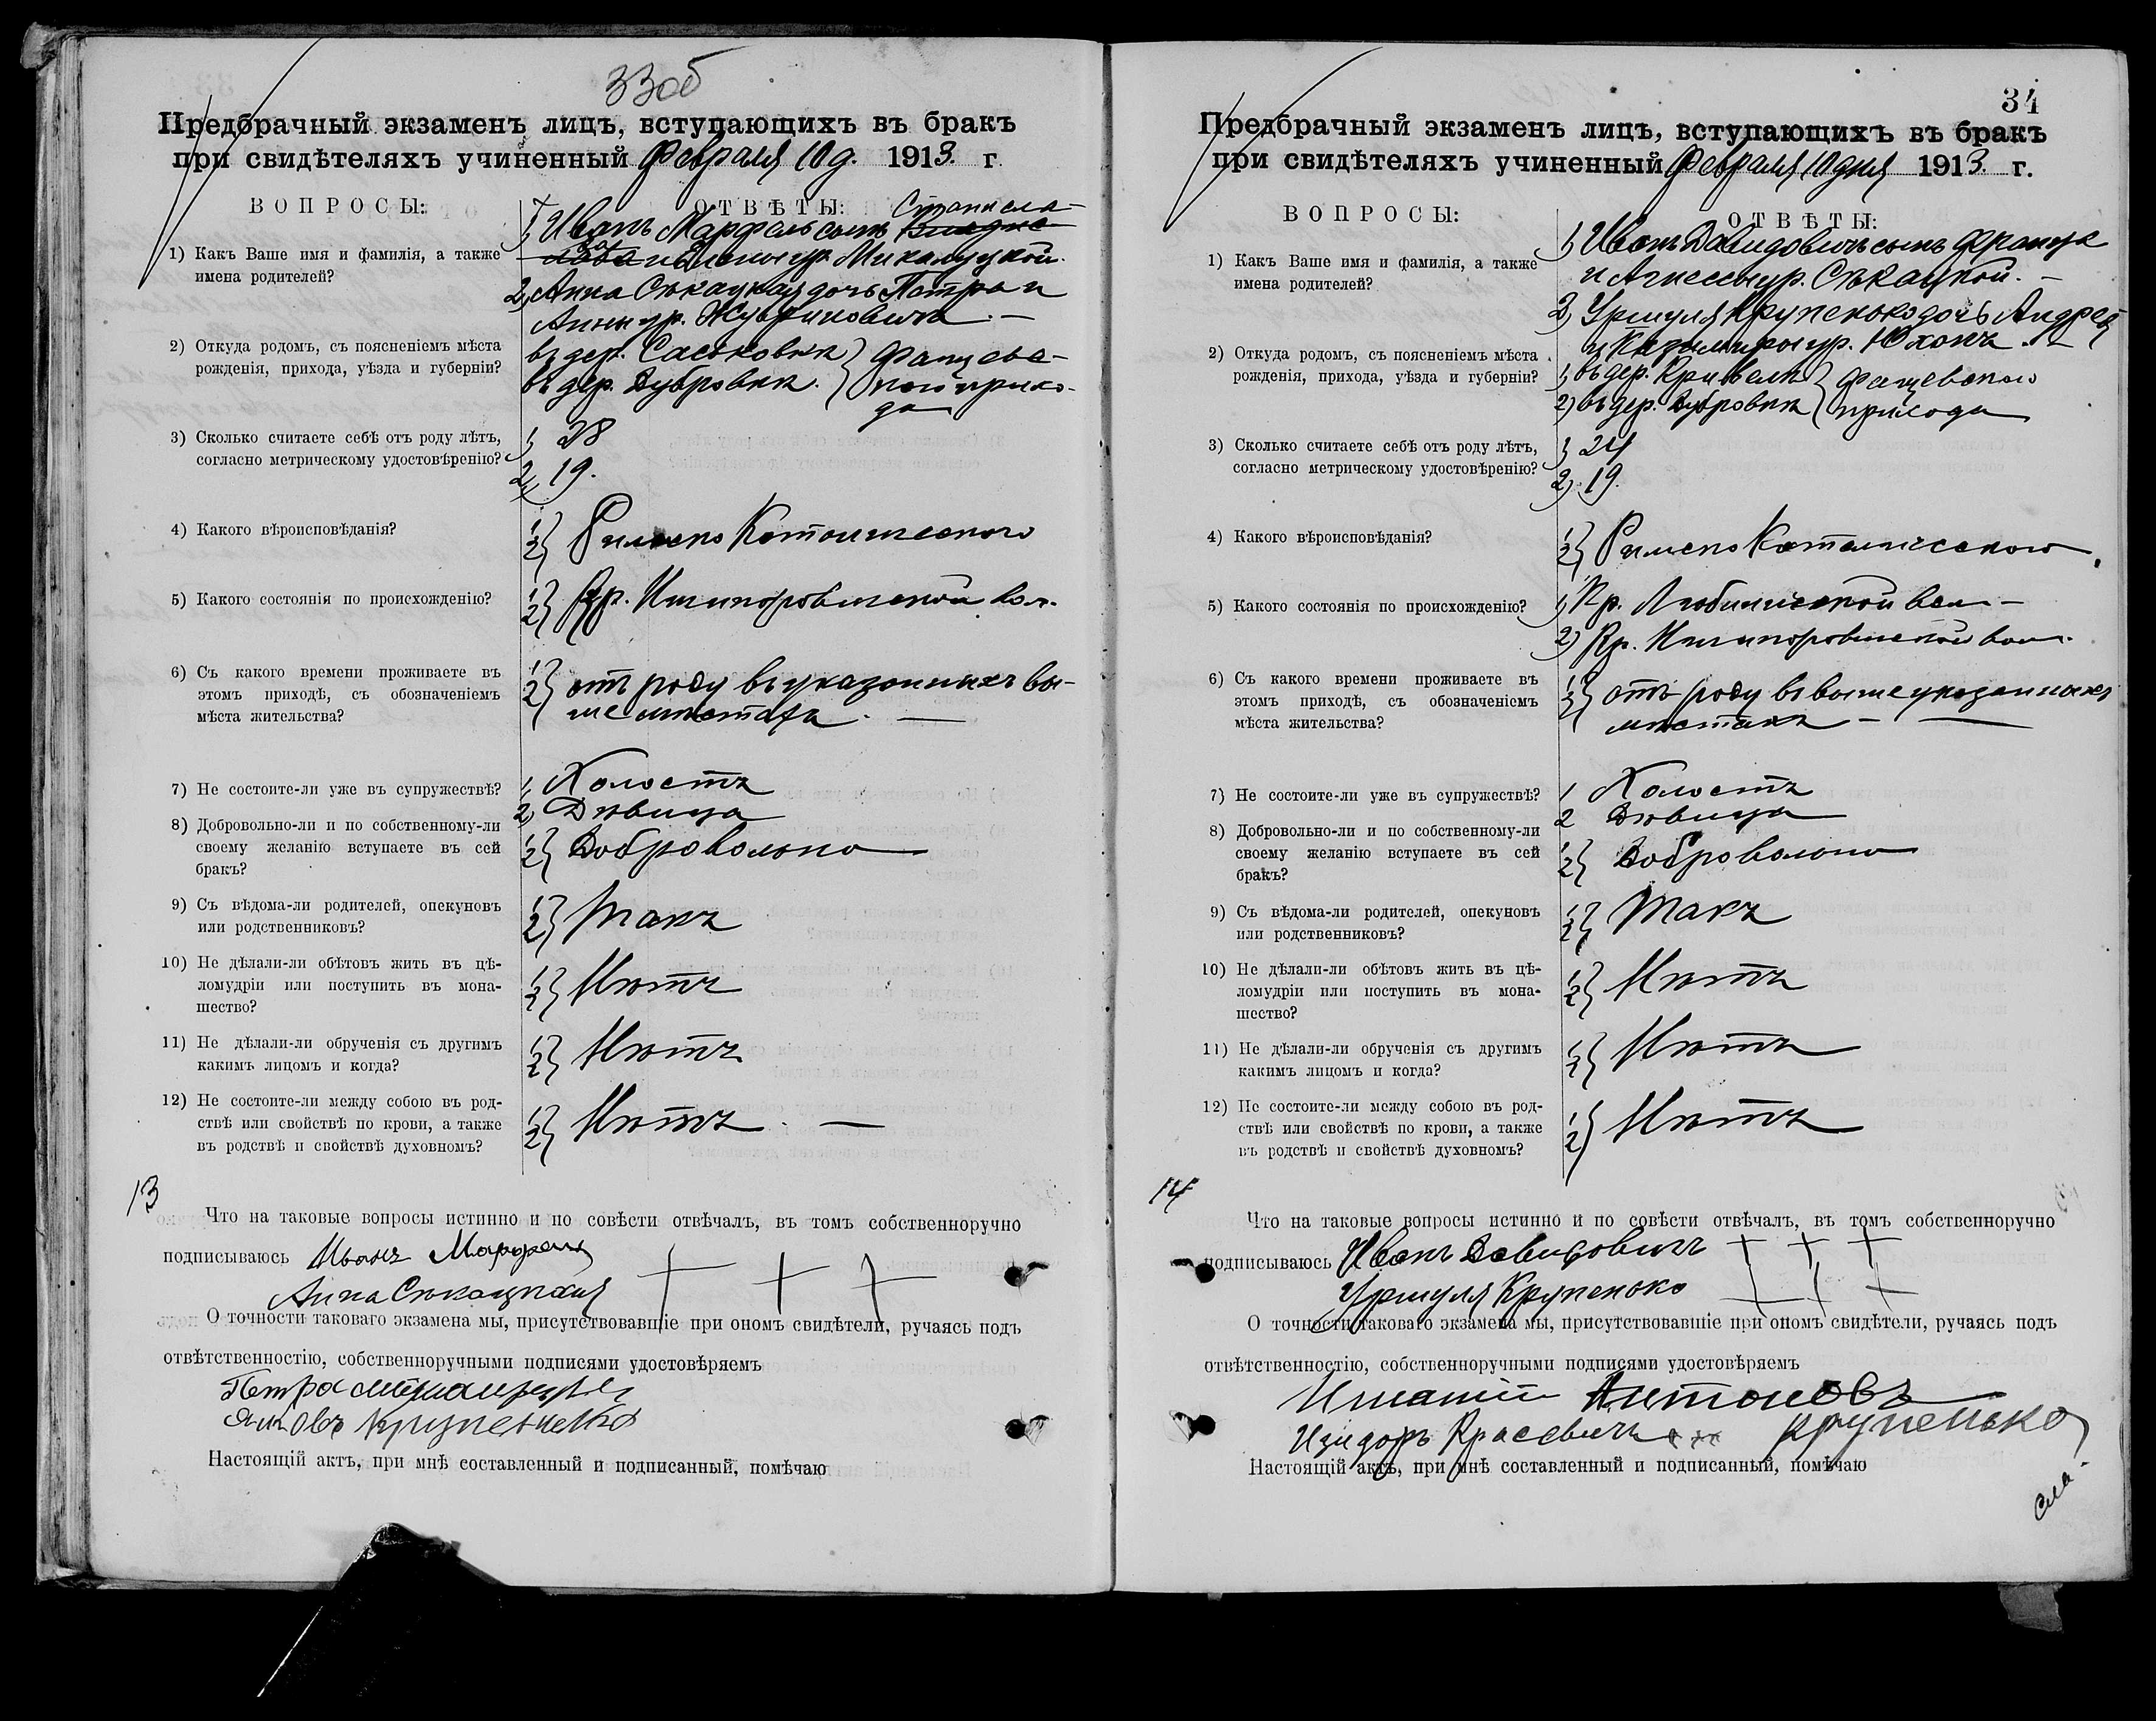 33 об
Предбрачный экзаменъ лицъ, вступающихъ въ бракъ
при свидѣтеляхъ учиненный Февраля 10 д. 1913 г.
ВОПРОСЫ:
ОТВѢТЫ:
1) Какъ Ваше имя и фамилія, а также
имена родителей?
Станисла-
1) Иванъ Марфель сынъ
ва и Елены ур. Микалуцкой.
2) Анна Сѣкацкая дочь Петра и
Анны ур.
2) Откуда родомъ, съ поясненіемъ мѣста
рожденія, прихода, уѣзда и губерніи?
въ дер. Саськовкѣ } Фащевс-
въ дер. Дубровкѣ. } каго прихо-
да
3) Сколько считаете себѣ отъ роду лѣтъ,
согласно метрическому удостовѣренію?
1) 28
2) 19.
4) Какого вѣроисповѣданія?
1 2} Римско Католическаго
5) Какого состоянія по происхожденію?
1 2} Кр. вол.
6) Съ какого времени проживаете въ
этомъ приходѣ, съ обозначеніемъ
мѣста жительства?
1 2} отъ роду въ указанныхъ вы-
ше мѣстахъ. —
7) Не состоите-ли уже въ супружествѣ?
1, Холостъ
2) Дѣвица
8) Добровольно-ли и по собственному-ли
своему желанію вступаете въ сей
бракъ?
1 2} Добровольно
9) Съ вѣдома-ли родителей, опекуновъ
или родственниковъ?
1 2} Такъ
10) Не дѣлали-ли обѣтовъ жить въ цѣ-
ломудріи или поступить въ мона-
шество?
1 2} Нѣтъ
11) Не дѣлали-ли обрученія съ другимъ
какимъ лицомъ и когда?
1 2} Нѣтъ
12) Не состоите-ли между собою въ род-
ствѣ или свойствѣ по крови, а также
въ родствѣ и свойствѣ духовномъ?
1 2} Нѣтъ. —
13
Что на таковые вопросы истинно и по совѣсти отвѣчалъ, въ томъ собственноручно
подписываюсь Иванъ Марфель
Анна Сѣкацкая + + +
О точности таковаго экзамена мы, присутствовавшіе при ономъ свидѣтели, ручаясь подъ
отвѣтственностію, собственноручными подписями удостовѣряемъ
Яковъ Крупенько
Настоящій актъ, при мнѣ составленный и подписанный, помѣчаю
34
Предбрачный экзаменъ лицъ, вступающихъ въ бракъ
при свидѣтеляхъ учиненный Февраля 10 дня 1913 г.
ВОПРОСЫ:
ОТВѢТЫ:
1) Какъ Ваше имя и фамилія, а также
имена родителей?
1) Иванъ Давидовичъ сынъ Франца
и Агнессы ур. Сѣкацкой. —
2) Уршуля Крупенько дочь Андрея
и Казимиры ур. Юханъ.
2) Откуда родомъ, съ поясненіемъ мѣста
рожденія, прихода, уѣзда и губерніи?
1) въ дер. } Фащевскаго
2) въ дер. Дубровкѣ } прихода
3) Сколько считаете себѣ отъ роду лѣтъ,
согласно метрическому удостовѣренію?
1) 24
2) 19.
4) Какого вѣроисповѣданія?
1 2} Римско Католическаго
5) Какого состоянія по происхожденію?
1) Кр. Любиничской вол —
2) Кр. вол.
6) Съ какого времени проживаете въ
этомъ приходѣ, съ обозначеніемъ
мѣста жительства?
1 2} отъ роду въ выше указанныхъ
мѣстахъ — —
7) Не состоите-ли уже въ супружествѣ?
1 Холостъ
2 Дѣвица
8) Добровольно-ли и по собственному-ли
своему желанію вступаете въ сей
бракъ?
1 2} Добровольно
9) Съ вѣдома-ли родителей, опекуновъ
или родственниковъ?
1 2} Такъ
10) Не дѣлали-ли обѣтовъ жить въ цѣ-
ломудріи или поступить въ мона-
шество?
1 2} Нѣтъ
11) Не дѣлали-ли обрученія съ другимъ
какимъ лицомъ и когда?
1 2} Нѣтъ
12) Не состоите-ли между собою въ род-
ствѣ или свойствѣ по крови, а также
въ родствѣ и свойствѣ духовномъ?
1 2} Нѣтъ
14
Что на таковые вопросы истинно и по совѣсти отвѣчалъ, въ томъ собственноручно
подписываюсь Иванъ Давидовичъ + + +
Уршуля Крупенько + + +
О точности таковаго экзамена мы, присутствовавшіе при ономъ свидѣтели, ручаясь подъ
отвѣтственностію, собственноручными подписями удостовѣряемъ
Игнатій Антоновъ
Изидоръ Красевичъ Крупенько
Настоящій актъ, при мнѣ составленный и подписанный, помѣчаю